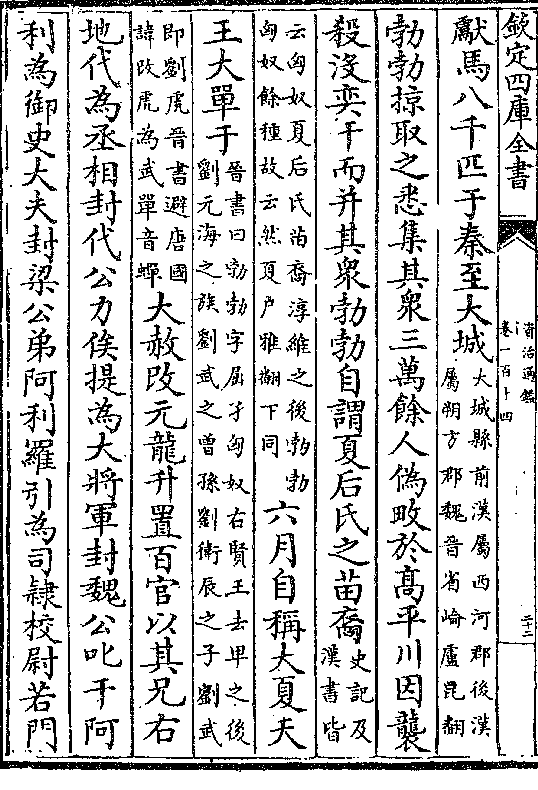 欽定四庫全書
資治通鑑
卷一百十四
二十二
獻馬八千匹于秦至大城大城縣前漢屬西河郡後漢屬朔方郡魏晉省崎廬毘翻
勃勃掠取之悉集其衆三萬餘人偽畋於高平川因襲
殺没奕干而并其衆勃勃自謂夏后氏之苗裔史記及漢書皆
云匈奴夏后氏苗裔淳維之後勃勃匈奴餘種故云然夏户雅翻下同六月自稱大夏天
王大單于晉書曰勃勃字屈孑匈奴右賢王去卑之後劉元海之族劉武之曾孫劉衛辰之子劉武
即劉虎晉書避唐國諱改虎為武單音蟬大赦改元龍升置百官以其兄右
地代為丞相封代公力俟提為大將軍封魏公叱干阿
利為御史大夫封梁公弟阿利羅引為司隸校尉若門